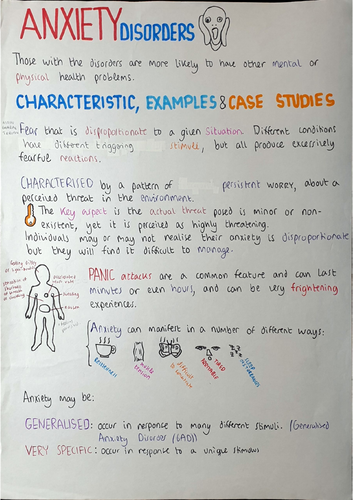 ANXIETY DISORDERS
Those with the disorders are more likely to have other mental or
physical health problems.
CHARACTERISTIC, EXAMPLES & CASE STUDIES
Fear that is disproportionate to a given situation. Different conditions
have different triggering stimuli, but all produce excessively
fearful reactions.
CHARACTERISED by a pattern of persistent worry, about a
perceived threat in the environment.
The key aspect is the actual threat posed is minor or non-
existent, yet it is perceived as highly threatening.
Individuals may or may not realise their anxiety is disproportionate
but they will find it difficult to manage.
PANIC attacks are a common feature and can last
minutes or even hours, and can be very frightening
experiences.
Anxiety can manifest in a number of different ways:
Restlessness
muscle
tension
difficult
to
TIRED
SLEEP
Anxiety may be:
GENERALISED: occur in response to many different stimuli. (Generalised
Anxiety Disorder (GAD))
VERY SPECIFIC: occur in response to a unique stimulus